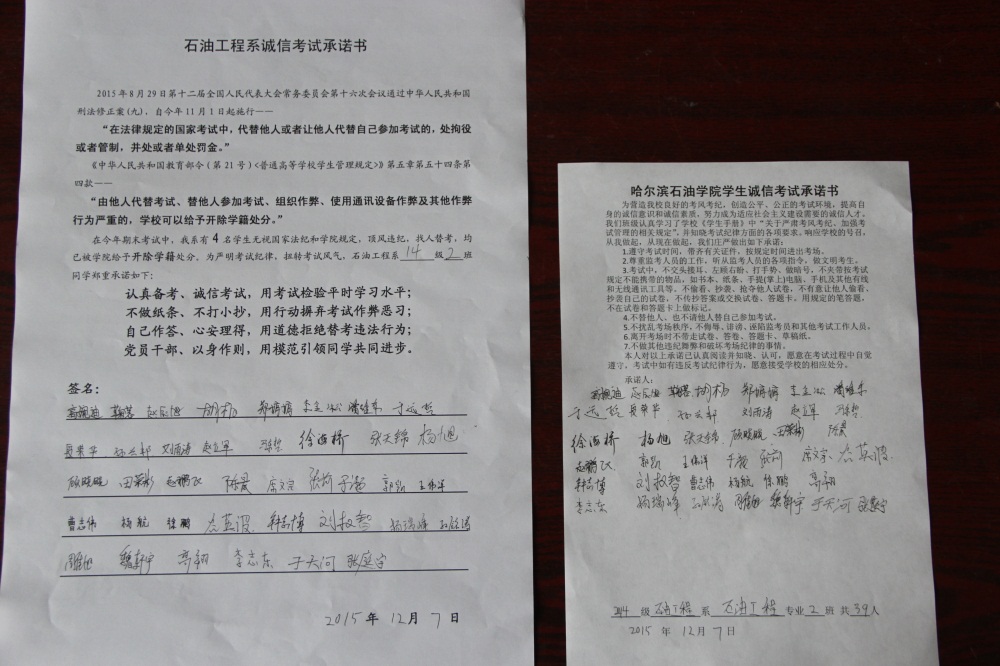 石油工程系诚信考试承诺书
2015年8月29日第十二届全国人民代表大会常务委员会第十六次会议通过中华人民共和国
刑法修正案(九)，自今年11月1日起施行——
“在法律规定的国家考试中，代替他人或者让他人代替自己参加考试的，处拘役
或者管制，并处或者单处罚金。”
《中华人民共和国教育部令（第21号）<普通高等学校学生管理规定>》第五章第五十四条第
四款——
“由他人代替考试、替他人参加考试、组织作弊、使用通讯设备作弊及其他作弊
行为严重的，学校可以给予开除学籍处分。”
在今年期末考试中，我系有4名学生无视国家法纪和学院规定，顶风违纪，找人替考，均
已被学院给予开除学籍处分。为严明考试纪律，扭转考试风气，石油工程系14级2班
同学郑重承诺如下：
认真备考、诚信考试，用考试检验平时学习水平；
不做纸条、不打小抄，用行动摒弃考试作弊恶习；
自己作答、心安理得，用道德拒绝替考违法行为；
党员干部、以身作则，用模范引领同学共同进步。
签名：
胡杨 郑娟娟
刘雨涛 赵立军 徐海桥 张天锦 杨旭
田荣彬 赵鹏飞 陈晨 席文宗 张莉 于潇 郭凯 王伟洋
曹志伟 杨航 徐鹏 韩志博 刘权智 杨瑞峰
周雅旭 魏新宇 高翔 李志东 于天河 张庭宇
2015年12月7日
哈尔滨石油学院学生诚信考试承诺书
为营造我校良好的考风考纪，创造公平、公正的考试环境，提高自
身的诚信意识和诚信素质，努力成为适应社会主义建设需要的诚信人才，
我们班级认真学习了学校《学生手册》中“关于严肃考风考纪、加强考
试管理的相关规定”，并知晓考试纪律方面的各项要求，响应学校的号召，
从我做起，从现在做起，我们庄严做出如下承诺：
1.遵守考试时间，带齐有关证件，按规定时间进出考场。
2.尊重监考人员的工作，听从监考人员的各项指令，做文明考生。
3.考试中，不交头接耳、左顾右盼、打手势、做暗号，不夹带按考试
规定不能携带的物品，如书本、纸条、手提(掌上)电脑、手机及其他有线
和无线通讯工具等，不偷看、抄袭、抢夺他人试卷，不有意让他人偷看、
抄袭自己的试卷，不传抄答案或交换试卷、答题卡。用规定的笔答题，
不在试卷和答题卡上做标记。
4.不替他人、也不请他人替自己参加考试。
5.不扰乱考场秩序，不侮辱、诽谤、诬陷监考员和其他考试工作人员。
6.离开考场时不带走试卷、答卷、答题卡、草稿纸。
7.不做其他违纪舞弊和破坏考场纪律的事情。
本人对以上承诺已认真阅读并知晓、认可，愿意在考试过程中自觉
遵守，考试中如有违反考试纪律行为，愿意接受学校的相应处分。
承诺人：
胡杨 郑娟娟
刘雨涛 赵立军
徐海桥 杨旭 张天锦 田荣彬 陈晨
赵鹏飞 郭凯 王伟洋 于潇 张莉 席文宗
韩志博 刘权智 曹志伟 杨航 徐鹏 高翔
李志东 杨瑞峰 周雅旭 魏新宇 于天河 张庭宇
2014级石油工程系石油工程专业2班共39人
2015年12月7日